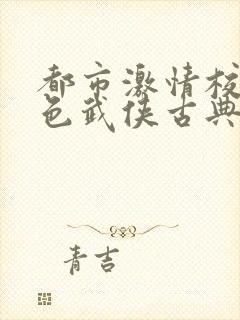 都市激情校
色武侠古典
青吉